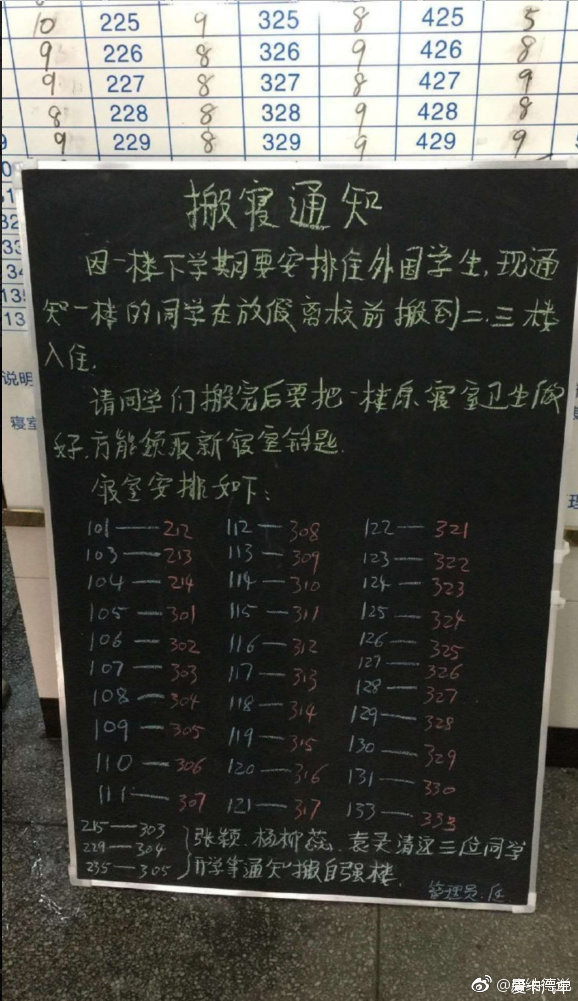 10 225 9 325 8 425 5
9 226 8 326 9 426 8
9 227 8 327 8 427 9
8 228 8 328 9 428 8
9 229 8 329 9 429 9
说明
寝室
搬寝通知
因一楼下学期要安排住外国学生,现通
知一楼的同学在放假离校前搬到二.三楼
入住.
请同学们搬完后要把一楼原寝室卫生做
好,方能领取新寝室钥匙.
寝室安排如下:
101—212 112—308 122—321
103—213 113—309 123—322
104—214 114—310 124—323
105—301 115—311 125—324
106—302 116—312 126—325
107—303 117—313 127—326
108—304 118—314 128—327
109—305 119—315 129—328
110—306 120—316 130—329
111—307 121—317 131—330
133—333
215—303
229—304
235—305
张颖.杨柳蕊.袁清这三位同学
开学等通知搬自强楼.
管理员: